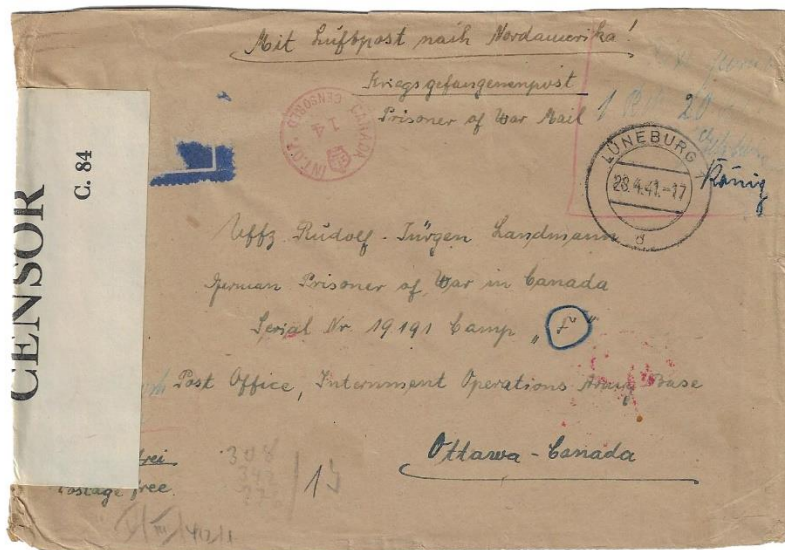 Mit Luftpost nach Nordamerika!
Kriegsgefangenenpost
Prisoner of War Mail
1 20
CANADA
CENSORED
14
INT. OP.
LÜNEBURG 1
28.4.41.-17
d
König
CENSOR
C. 84
Uffz. Rudolf-Jürgen Landmann
German Prisoner of War in Canada
Serial Nr 19191 Camp „F"
Post Office, Internment Operations Army Base
Ottawa-Canada
frei
Postage free
308
13